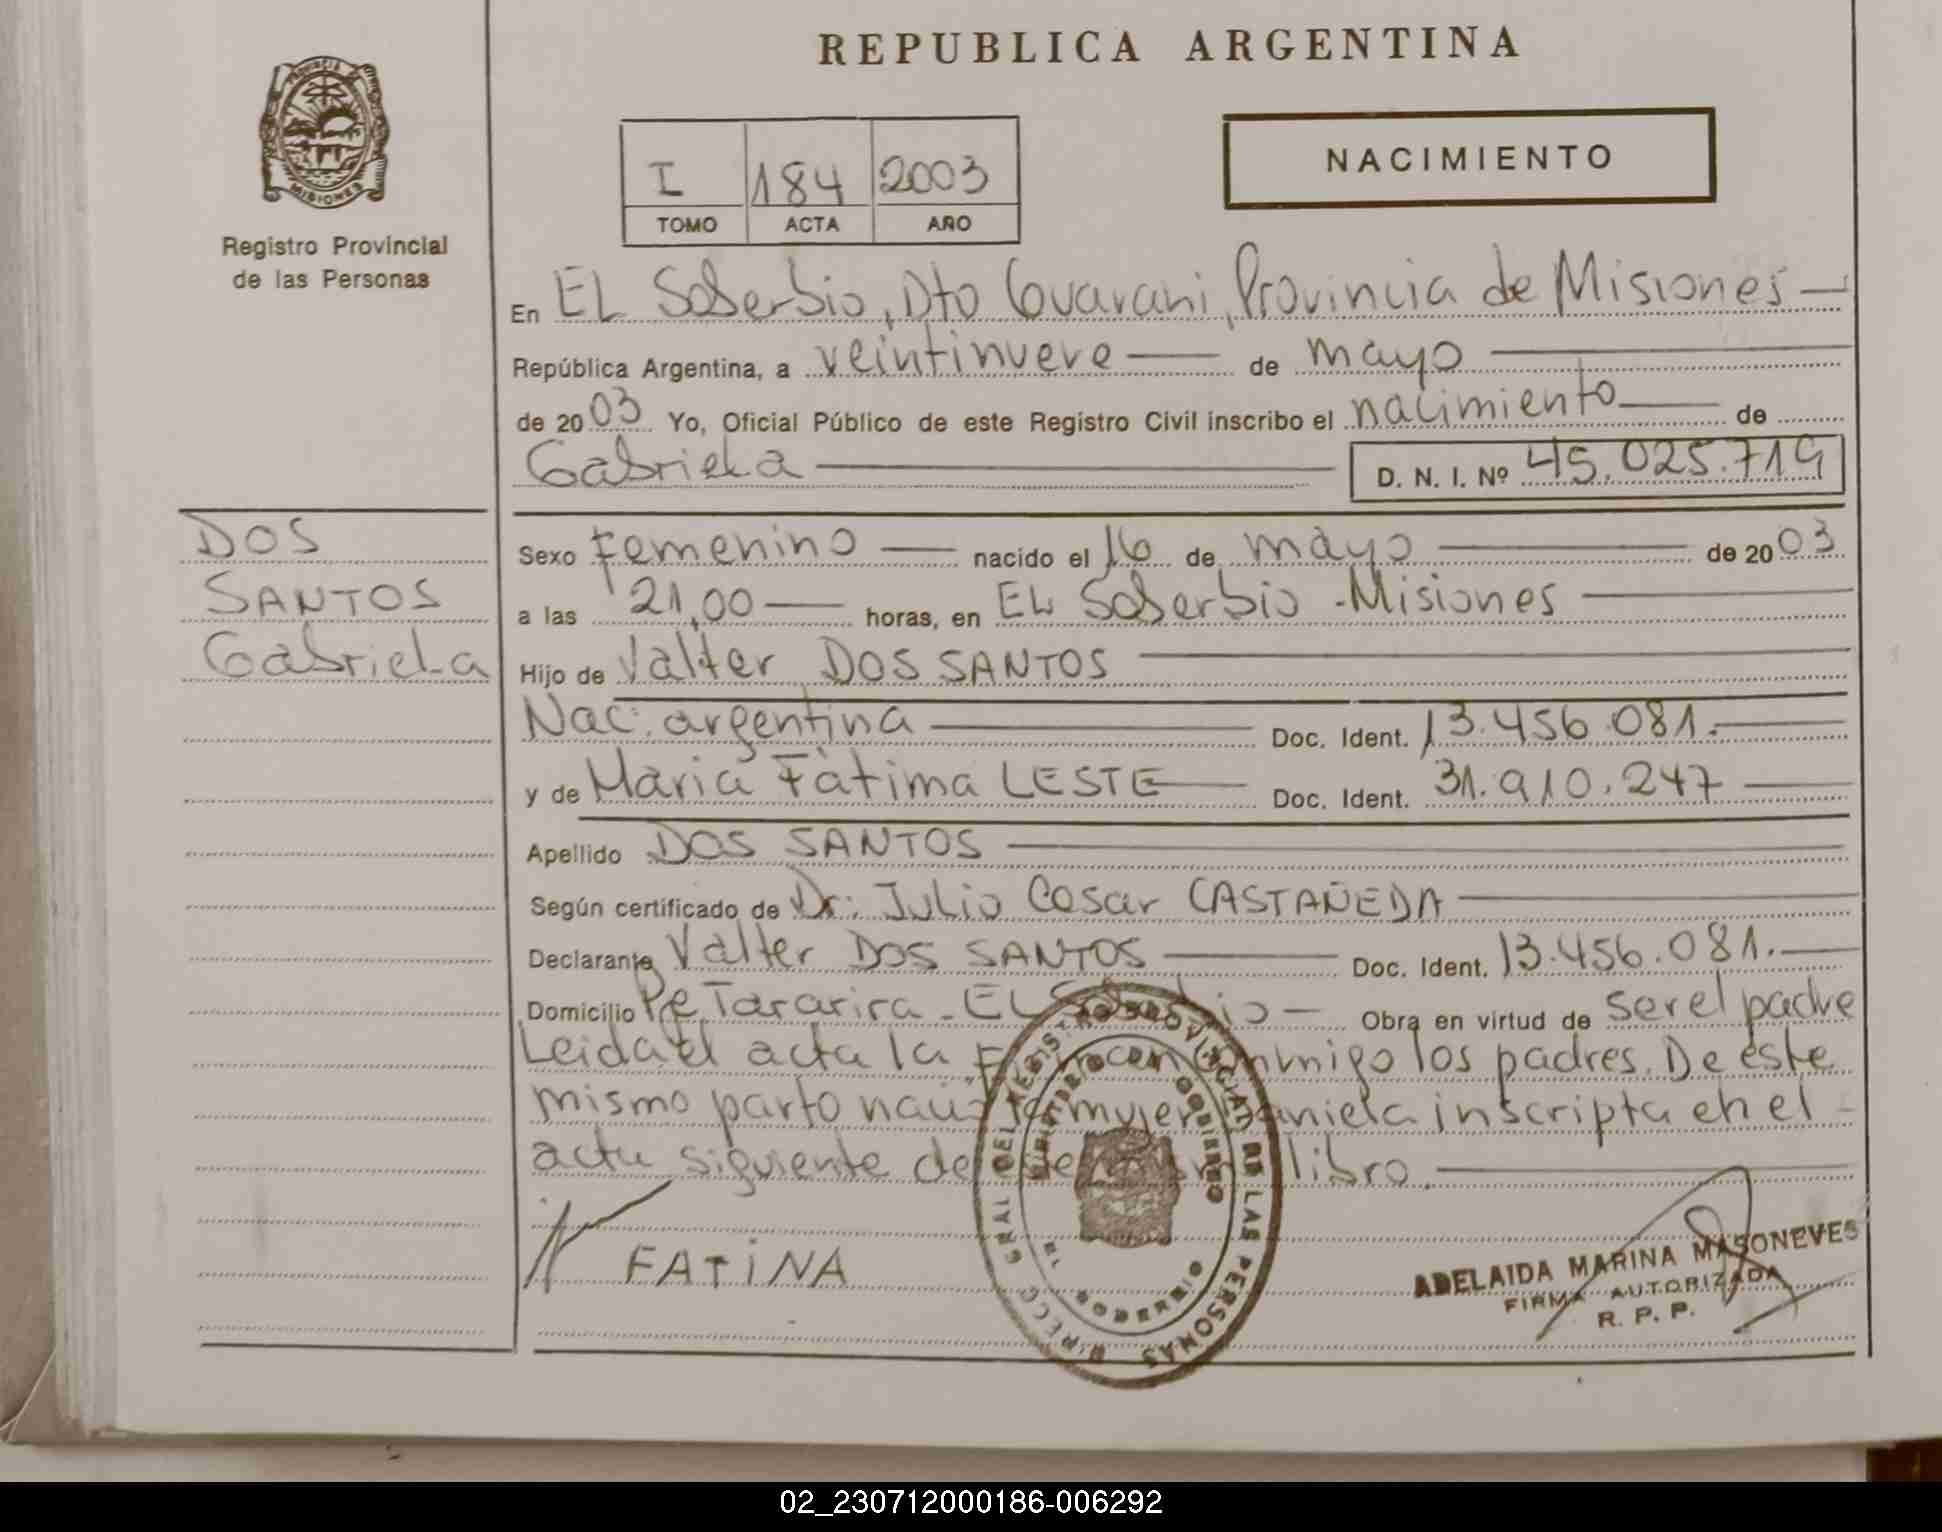 REPUBLICA ARGENTINA
PROVINCIA DE
MISIONES
Registro Provincial
de las Personas
I 184 2003
TOMO ACTA AÑO
NACIMIENTO
En EL Soberbio, Dto Guarani, Provincia de Misiones
República Argentina, a veintinueve de mayo
de 2003 Yo, Oficial Público de este Registro Civil inscribo el nacimiento de
Gabriela D. N. I. Nº 45.025.719
DOS
SANTOS
Gabriela
Sexo Femenino nacido el 16 de mayo de 2003
a las 21,00 horas, en EL Soberbio - Misiones
Hijo de Valter DOS SANTOS
Nac: argentina Doc. Ident. 13.456.081.
y de Maria Fátima LESTE Doc. Ident. 31.910.247
Apellido DOS SANTOS
Según certificado de Dr: Julio Cesar CASTAÑEDA
Declarante Valter DOS SANTOS Doc. Ident. 13.456.081.
Domicilio Pje Tararira - EL Soberbio - Obra en virtud de ser el padre
Leida el acta la firman conmigo los padres. De este
mismo parto nació la mujer Daniela inscripta en el
acta siguiente de libro.
FATiNA
DIRECC. GRAL. DEL REGISTRO PROVINCIAL DE LAS PERSONAS
MINISTERIO DE GOBIERNO
ADELAIDA MARINA MASONEVES
FIRMA AUTORIZADA
R. P. P.
02_230712000186-006292